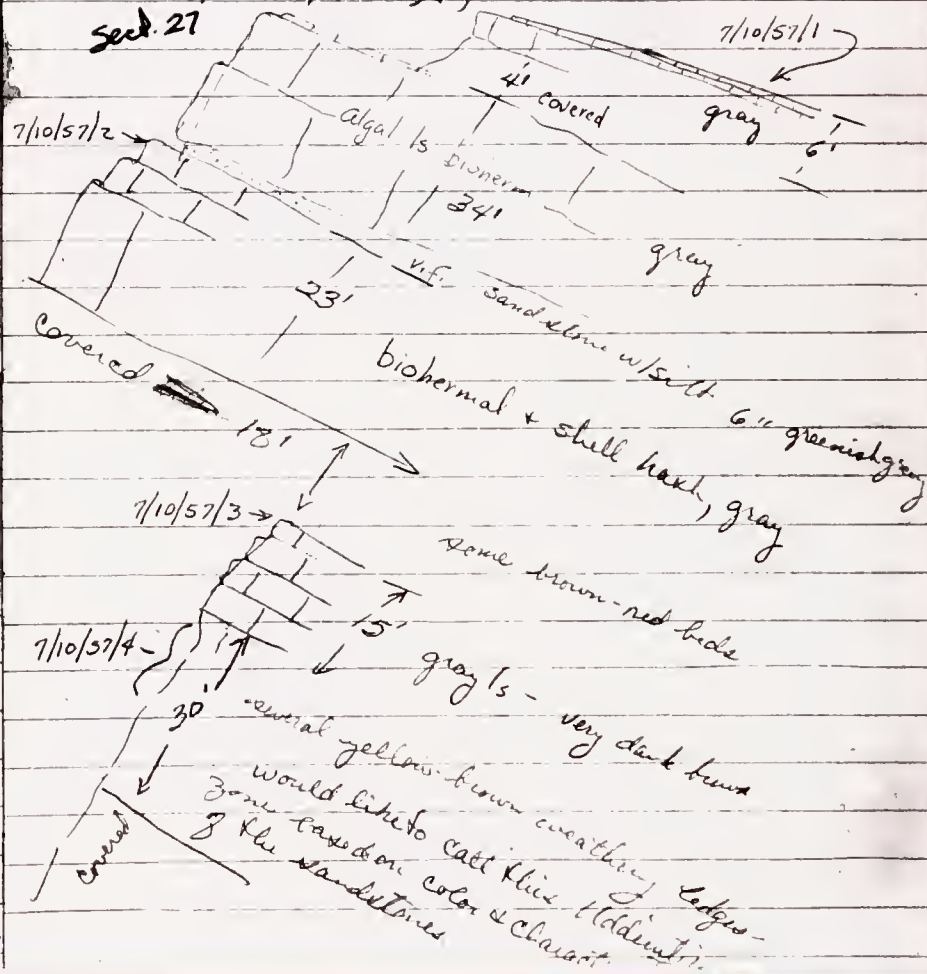 Sect. 27
7/10/57/1
4' covered
gray
6'
7/10/57/2
Algal ls bioherm
34'
gray
v.f. sandstone w/silt 6" greenish gray
23'
biohermal & shell hash, gray
covered
18'
7/10/57/3
some brown-red beds
15'
gray ls - very dark brown
7/10/57/4
30'
several yellow-brown weathering ledges -
would like to call this
zone based on color & charact.
of the sandstones
covered